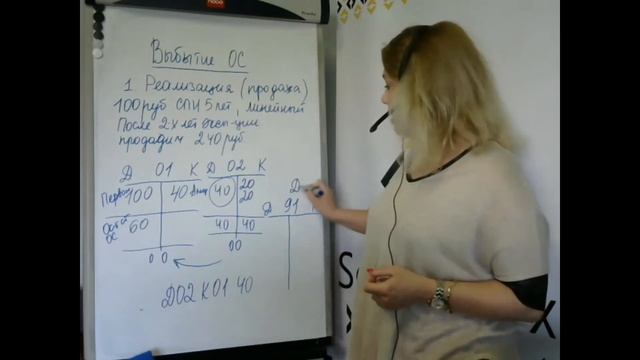 Выбытие ОС
1. Реализация (продажа)
100 руб СПИ 5 лет, линейный
После 2-х лет
продадим 240 руб
Д 01 К Д 02 К
100 40 40 20
20
Д
Д 91
60 40 40
00 00
Д02 К01 40